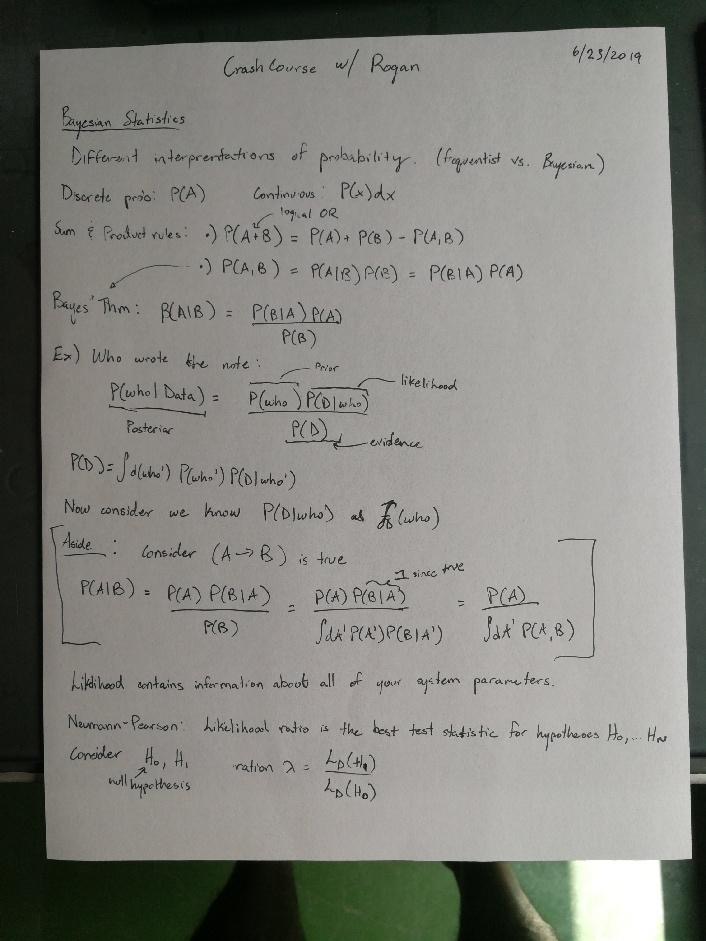 Crash Course w/ Rogan
6/23/2019
Bayesian Statistics
Different interprentations of probability. (frequentist vs. Bayesian)
Discrete prob: P(A) Continuous: P(x)dx
logical OR
Sum & Product rules: •) P(A+B) = P(A) + P(B) - P(A,B)
•) P(A,B) = P(A|B)P(B) = P(B|A) P(A)
Bayes' Thm: P(A|B) = P(B|A) P(A) / P(B)
Ex) Who wrote the note:
Prior
likelihood
P(who|Data) = P(who) P(D|who) / P(D)
Posterior
evidence
P(D) = ∫d(who') P(who') P(D|who')
Now consider we know P(D|who) as f(who)
Aside: Consider (A→B) is true
1 since true
P(A|B) = P(A) P(B|A) / P(B) = P(A) P(B|A) / ∫dA' P(A')P(B|A') = P(A) / ∫dA' P(A,B)
Liklihood contains information about all of your system parameters.
Neumann-Pearson: Likelihood ratio is the best test statistic for hypotheses H₀,... H_N
Consider H₀, H₁ ration λ = L_D(H₁) / L_D(H₀)
null hypothesis